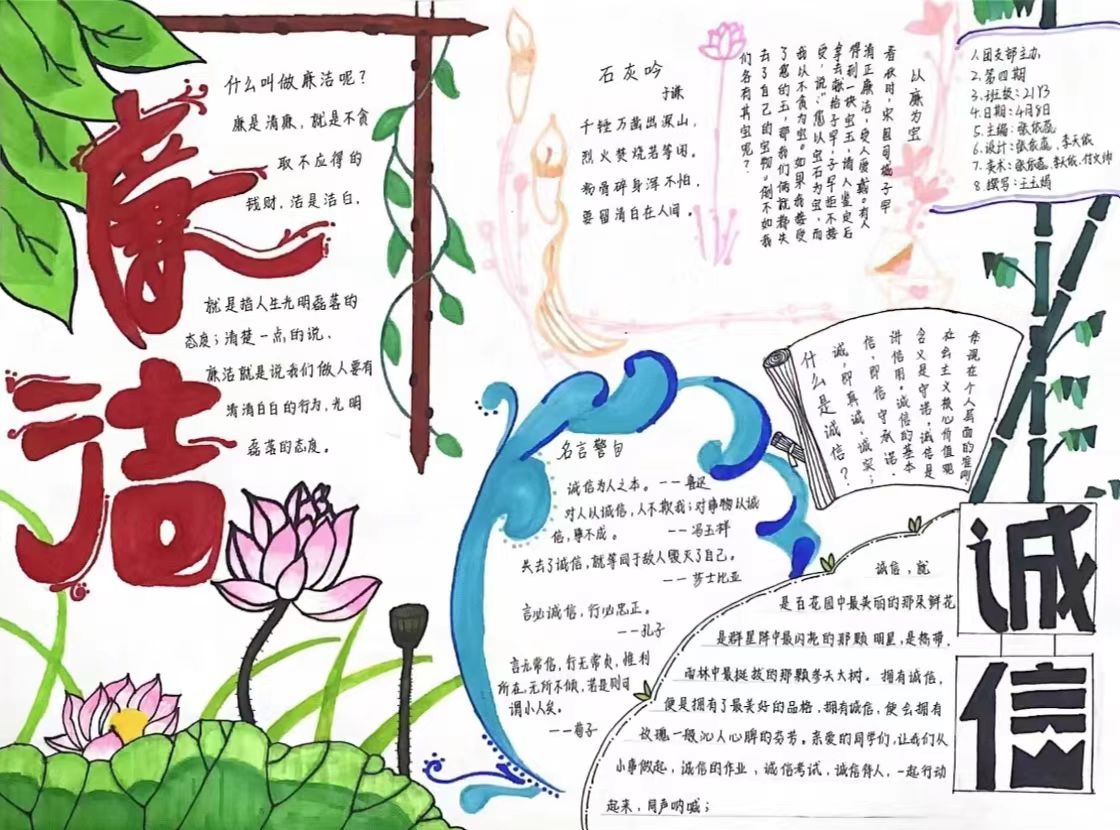 廉洁
什么叫做廉洁呢？
廉是清廉，就是不贪
取不应得的
钱财，洁是洁白，
就是指人生光明磊落的
态度；清楚一点的说，
廉洁就是说我们做人要有
清清白白的行为，光明
磊落的态度。
石灰吟
于谦
千锤万凿出深山，
烈火焚烧若等闲。
粉骨碎身浑不怕，
要留清白在人间。
以廉为宝
春秋时，宋国司城子罕
清正廉洁，受人爱戴。有人
得到一块宝玉，请人鉴定后
拿去献给子罕，子罕拒不接
受，说：“您以宝石为宝，而
我以不贪为宝。如果我接受
了您的玉，那我们俩就都失
去了自己的宝物。倒不如我
们各有其宝呢？
1.团支部主办
2.第四期
3.班级：21Y3
4.日期：4月8日
5.主编：张依蕊
6.设计：张依蕊，李天依
7.美术：张依蕊，李天依，付文帅
8.撰写：王玉娟
什么是诚信？
诚，即真诚、诚实；
信，即信守承诺、
讲信用。诚信的基本
含义是守诺，诚信是
社会主义核心价值观
名言警句
诚信为人之本。——鲁迅
对人以诚信，人不欺我；对事物以诚
信，事不成。 ——冯玉祥
失去了诚信，就等同于敌人毁灭了自己。
——莎士比亚
言必诚信，行必忠正。
——孔子
言无常信，行无常贞，惟利
所在，无所不倾，若是则可
谓小人矣。
——荀子
诚信
诚信，就
是百花园中最美丽的那朵鲜花
是群星阵中最闪亮的那颗明星，是热带，
雨林中最挺拔的那颗参天大树。拥有诚信，
便是拥有了最美好的品格，拥有诚信，便会拥有
玫瑰一般沁人心脾的芬芳。亲爱的同学们，让我们从
小事做起，诚信的作业，诚信考试，诚信待人，一起行动
起来，同声呐喊；